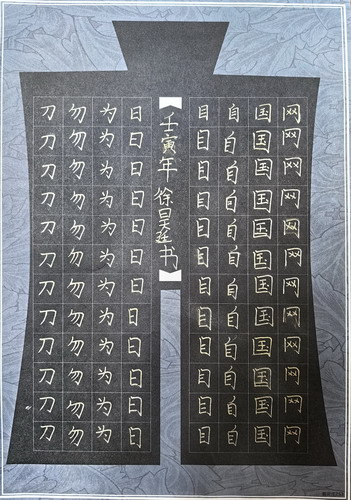 网网网网网网网网网网网网
国国国国国国国国国国国国
自自自自自自自自自自自自
目目目目目目目目目目目目
壬寅年 徐昊书
日日日日日日日日日日日日
为为为为为为为为为为为为
勿勿勿勿勿勿勿勿勿勿勿勿
刀刀刀刀刀刀刀刀刀刀刀刀